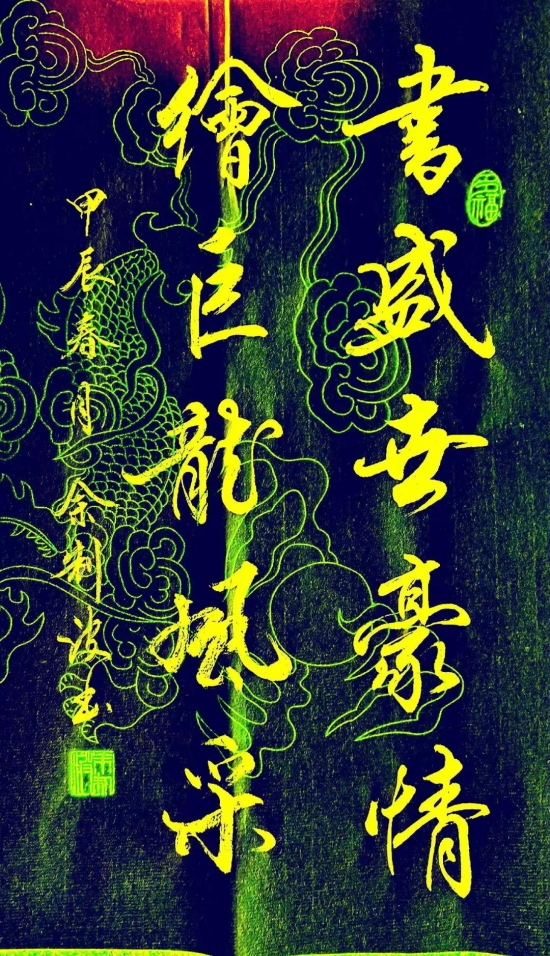 書盛世豪情
繪巨龍風采
甲辰春月余制波书